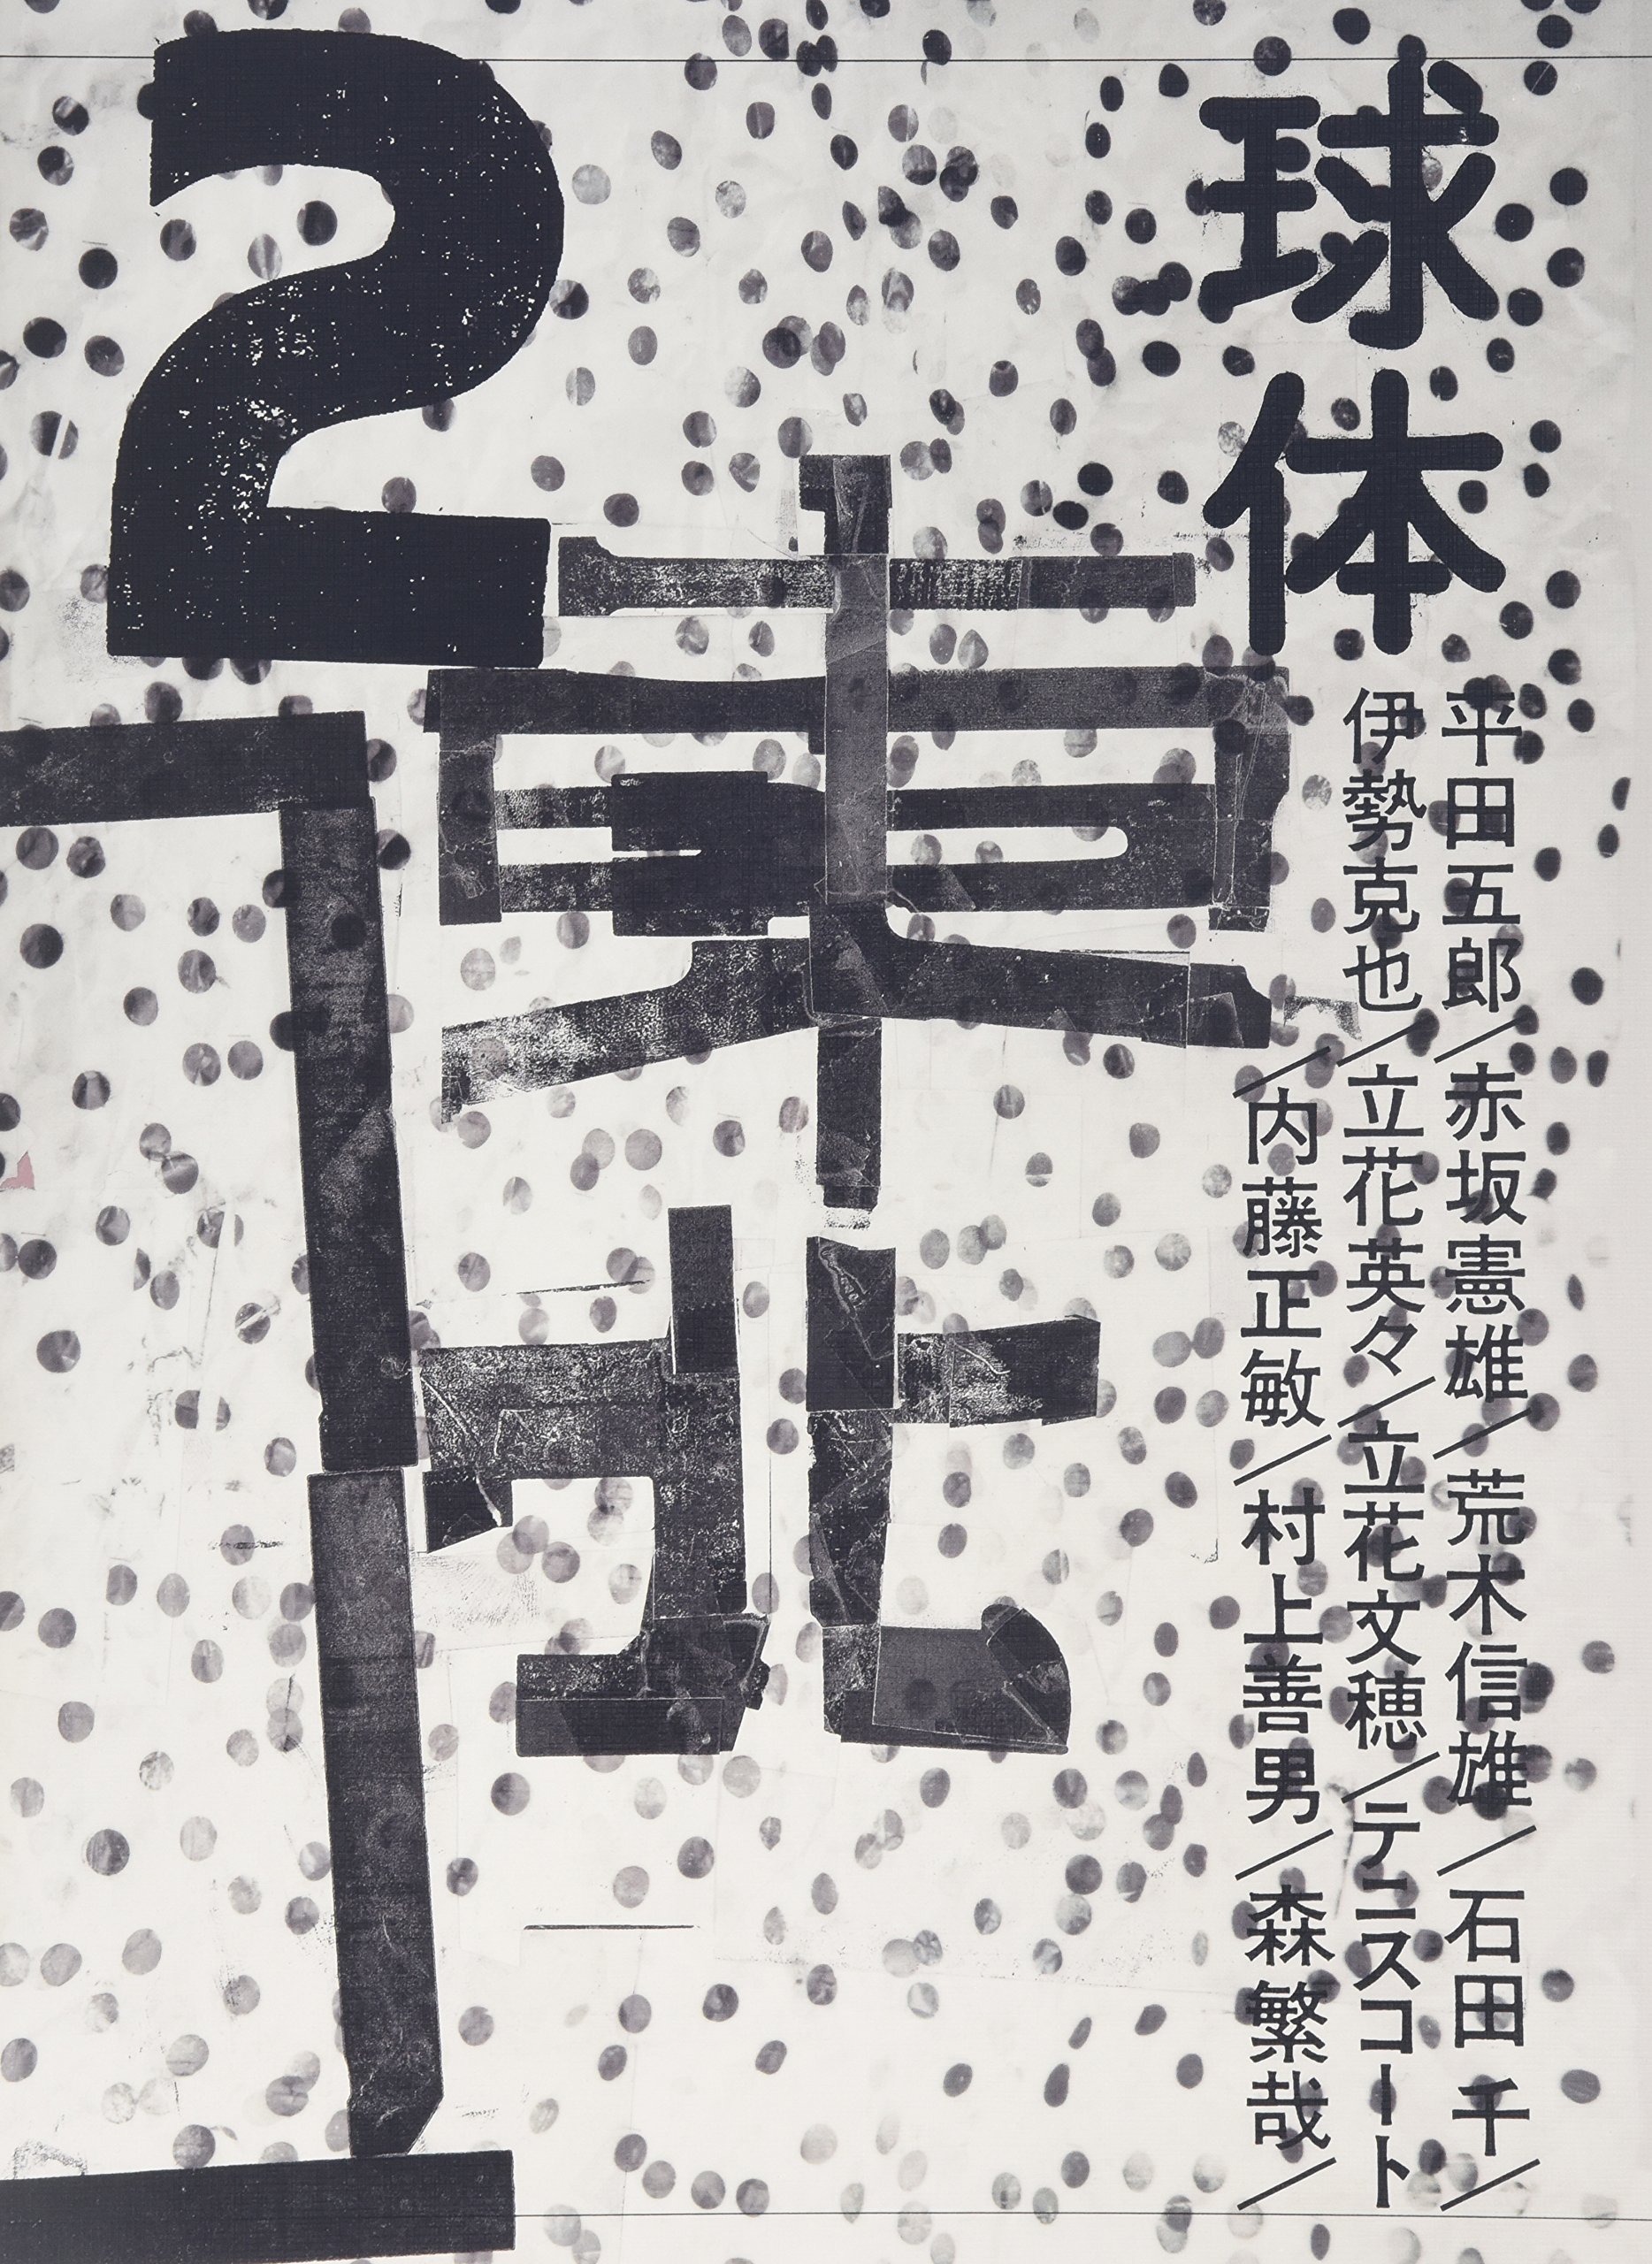 球体
2
東北
平田五郎／赤坂憲雄／荒木信雄／石田 千／
伊勢克也／立花英々／立花文穂／テニスコート
／内藤正敏／村上善男／森繁哉／